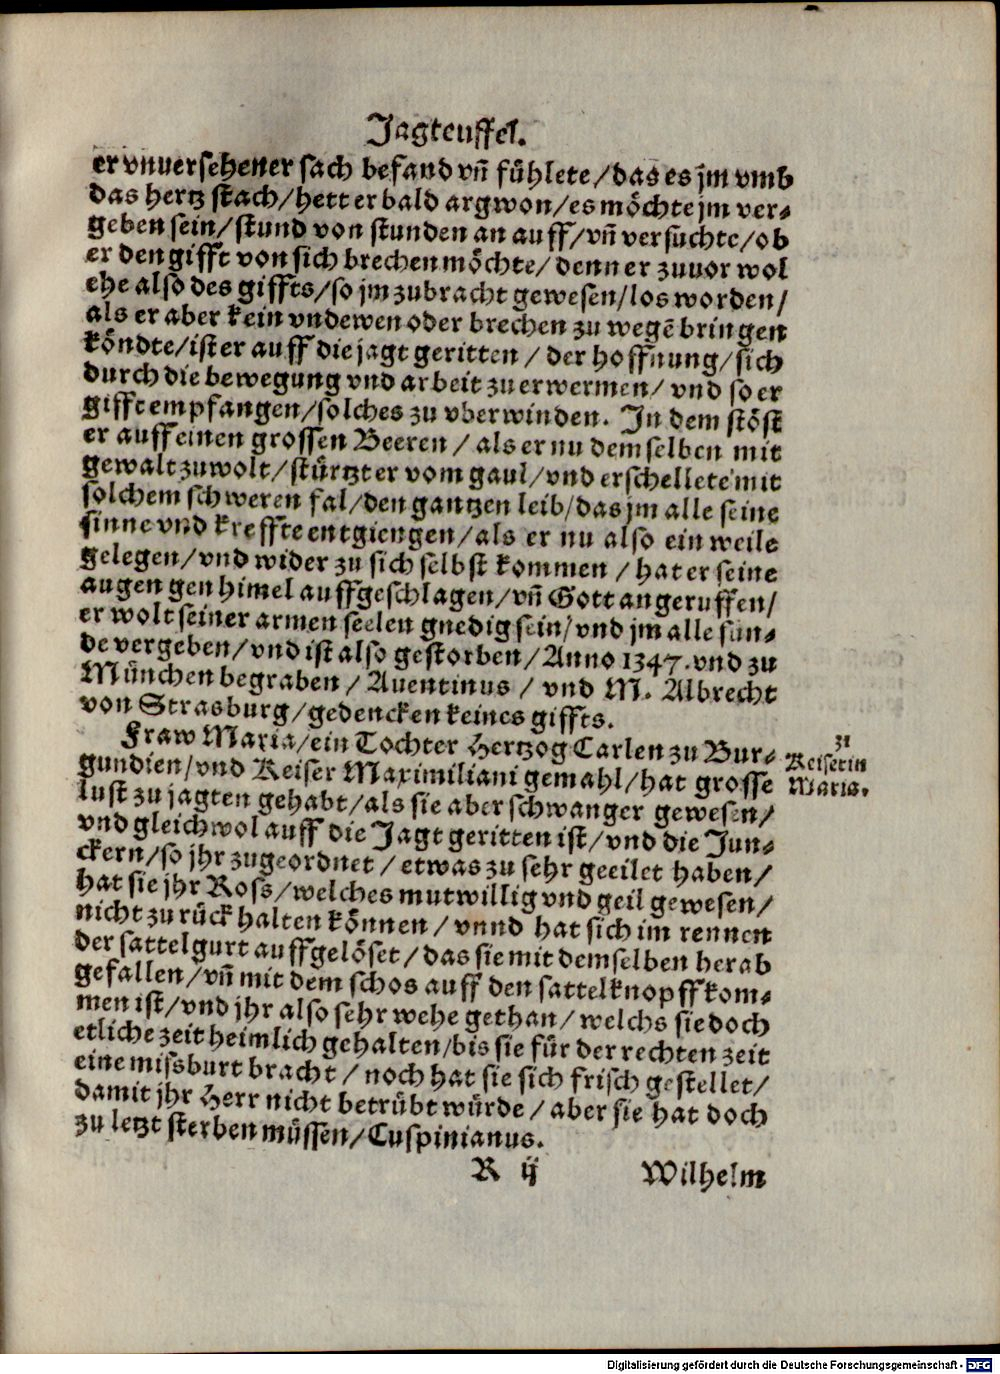 Jagteuffel.
er vnuersehener sach befand vñ fühlete/das es jm vmb
das hertz stach/hett er bald argwon/es möchte jm ver-
geben sein/stund von stunden an auff/vñ versuchte/ob
er den gifft von sich brechen möchte/denn er zuuor wol
ehe also des giffts/so jm zubracht gewesen/los worden/
als er aber kein vndewen oder brechen zu wegē bringen
köndte/ist er auff die jagt geritten/der hoffnung/sich
durch die bewegung vnd arbeit zu erwermen/vnd so er
gifft empfangen/solches zu vberwinden. In dem stöst
er auff einen grossen Beeren/als er nu demselben mit
gewalt zu wolt/stürtzt er vom gaul/vnd erschellete mit
solchem schweren fal/den gantzen leib/das jm alle seine
sinne vnd kreffte entgiengen/als er nu also ein weile
gelegen/vnd wider zu sich selbst kommen/hat er seine
augen gen himel auffgeschlagen/vñ Gott angeruffen/
er wolt seiner armen seelen gnedig sein/vnd jm alle sün-
de vergeben/vnd ist also gestorben/Anno 1347. vnd zu
München begraben/Auentinus/vnd M. Albrecht
von Strasburg/gedencken keines giffts.
Fraw Maria/ein Tochter Hertzog Carlen zu Bur-
gundien/vnd Keiser Maximiliani gemahl/hat grosse
lust zu jagten gehabt/als sie aber schwanger gewesen/
vnd gleichwol auff die Jagt geritten ist/vnd die Jun-
ckern/so jhr zugeordnet/etwas zu sehr geeilet haben/
hat sie jhr Ross/welches mutwillig vnd geil gewesen/
nicht zu rück halten können/vnnd hat sich im rennen
der sattelgurt auffgelöset/das sie mit demselben herab
gefallen/vñ mit dem schos auff den sattelknopff kom-
men ist/vnd jhr also sehr wehe gethan/welchs sie doch
etliche zeit heimlich gehalten/bis sie für der rechten zeit
eine missburt bracht/noch hat sie sich frisch gestellet/
damit jhr Herr nicht betrübt würde/aber sie hat doch
zu letzt sterben müssen/Cuspinianus.
31
Keiserin
Maria.
R ij
Wilhelm
Digitalisierung gefördert durch die Deutsche Forschungsgemeinschaft - DFG